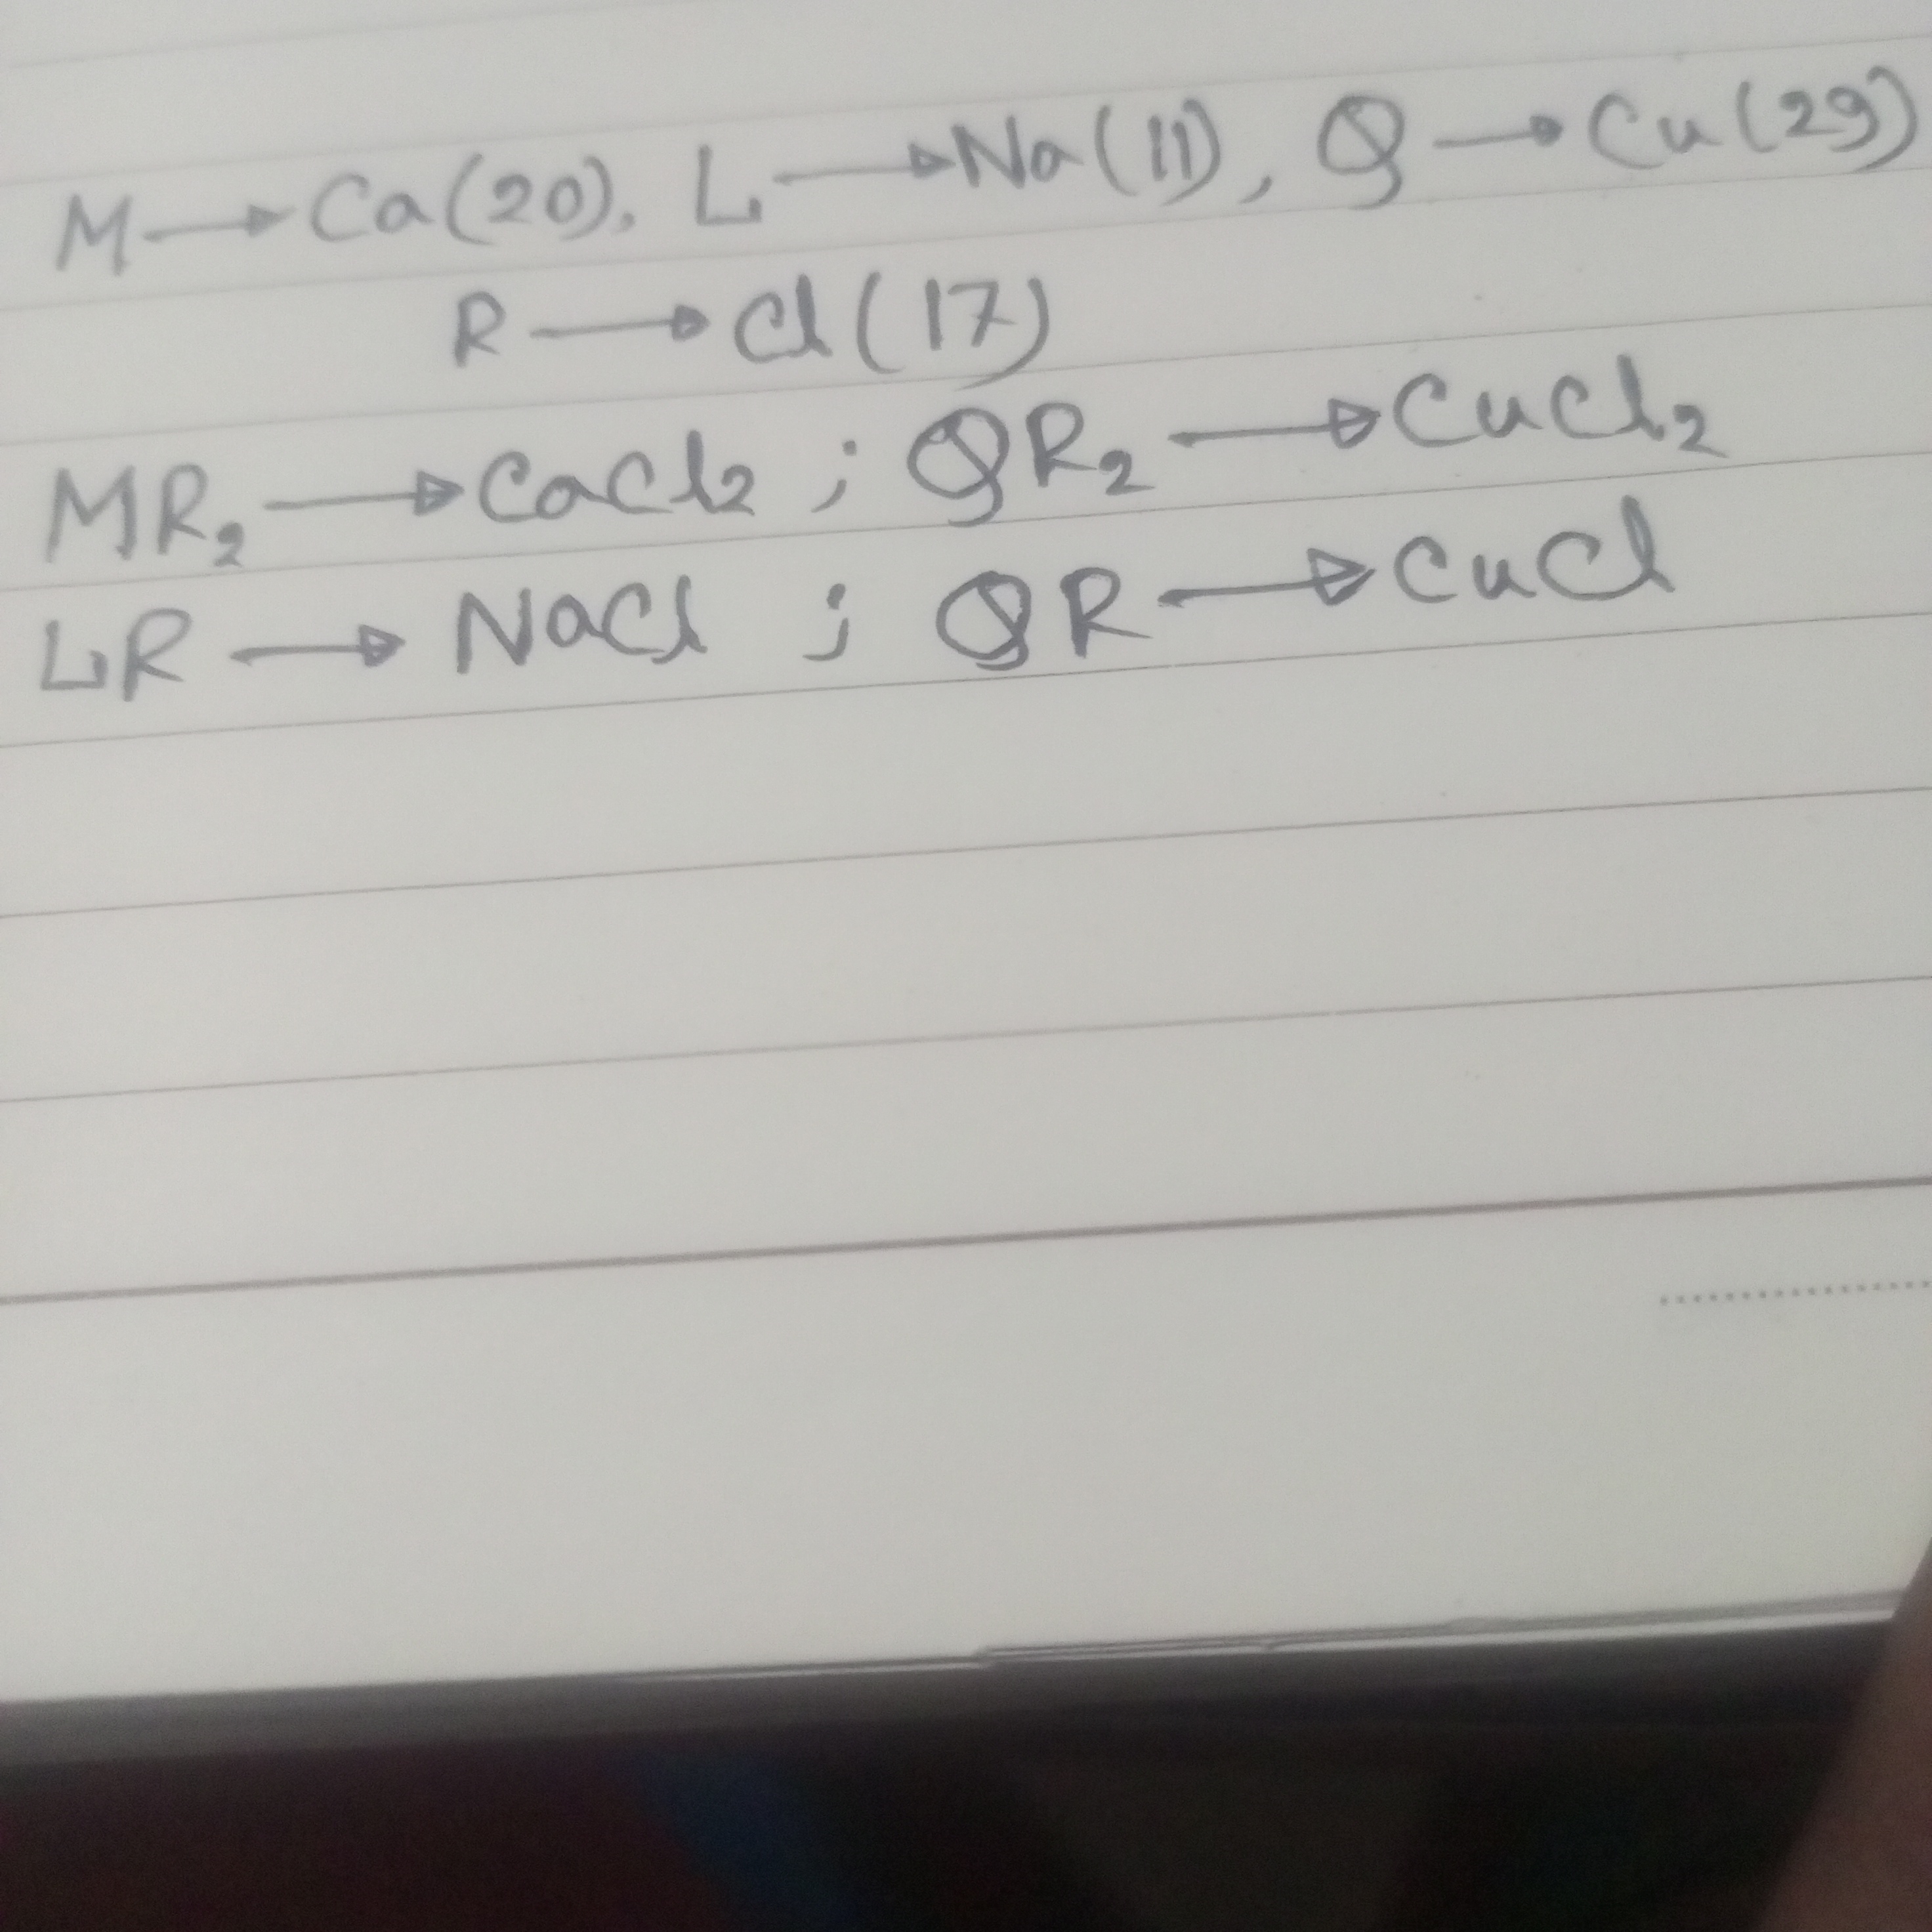 M → Ca(20), L → Na(11), Q → Cu(29)
R → Cl(17)
MR₂ → CaCl₂ ; QR₂ → CuCl₂
LR → NaCl ; QR → CuCl